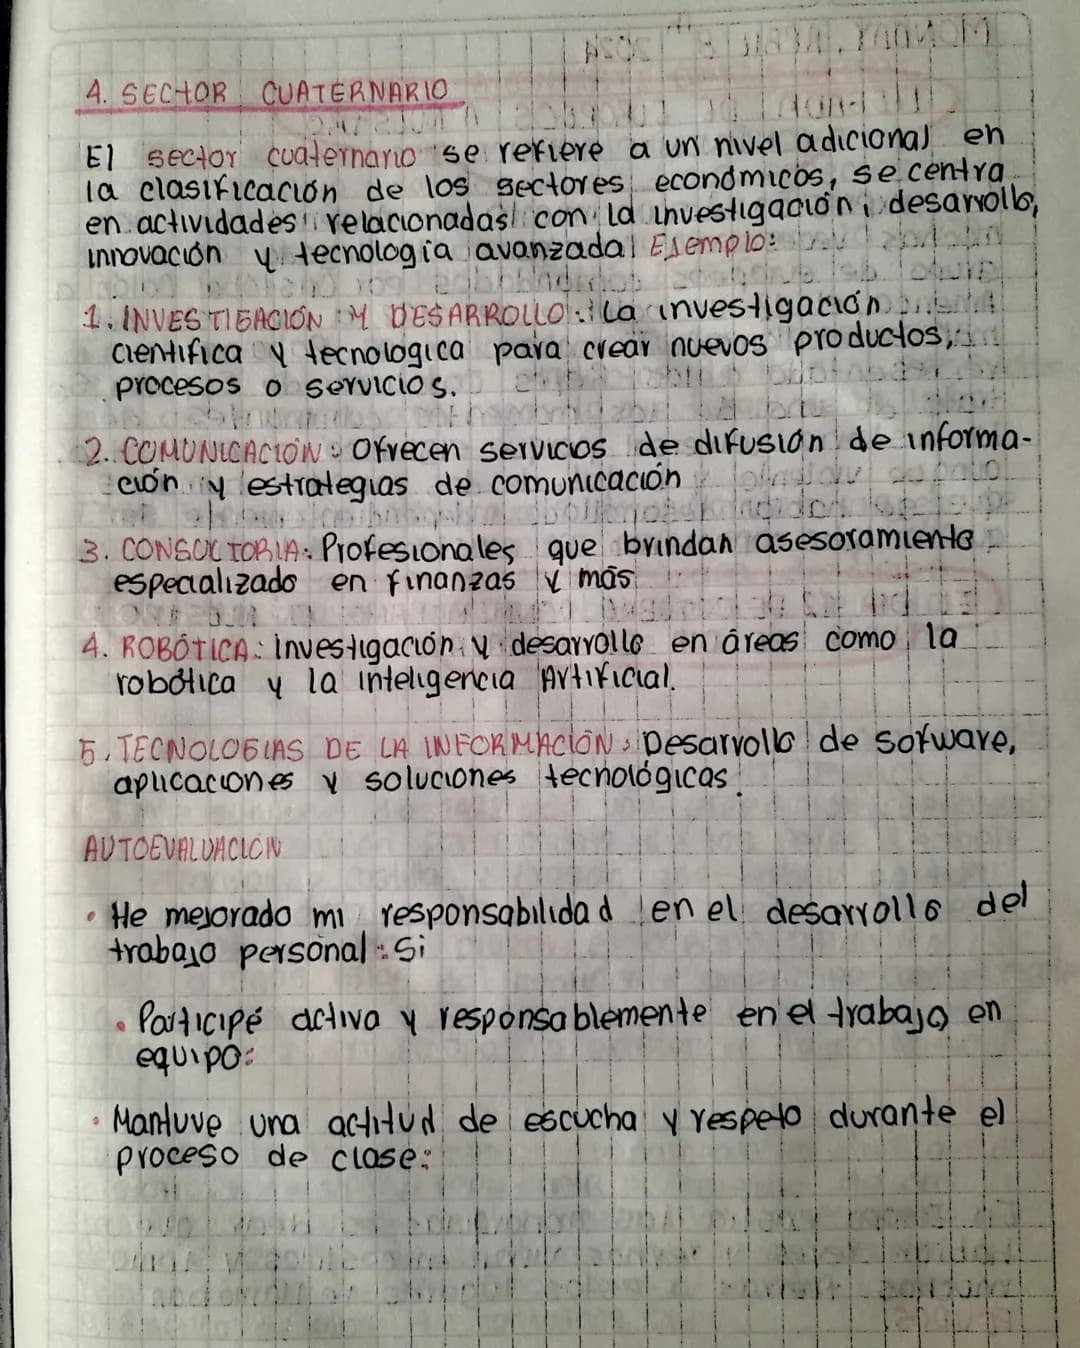 4. SECTOR CUATERNARIO
El sector cuaternario se refiere a un nivel adicional en
la clasificación de los sectores económicos, se centra
en actividades relacionadas con la investigación, desarrollo,
innovación y tecnología avanzada Ejemplo:
1. INVESTIGACIÓN Y DESARROLLO: La investigación
cientifica y tecnologica para crear nuevos productos,
procesos o servicios.
2. COMUNICACIÓN: Ofrecen servicios de difusión de informa-
ción y estrategias de comunicación
3. CONSULTORIA: Profesionales que brindan asesoramiento
especializado en finanzas y más
4. ROBÓTICA: investigación y desarrollo en áreas como la
robótica y la inteligencia Artificial.
5. TECNOLOGIAS DE LA INFORMACIÓN: Desarrollo de sofware,
aplicaciones y soluciones tecnológicas.
AUTOEVALUACIÓN
• He mejorado mi responsabilidad en el desarrollo del
trabajo personal: Si
• Participé activa y responsablemente en el trabajo en
equipo:
• Mantuve una actitud de escucha y respeto durante el
proceso de clase: